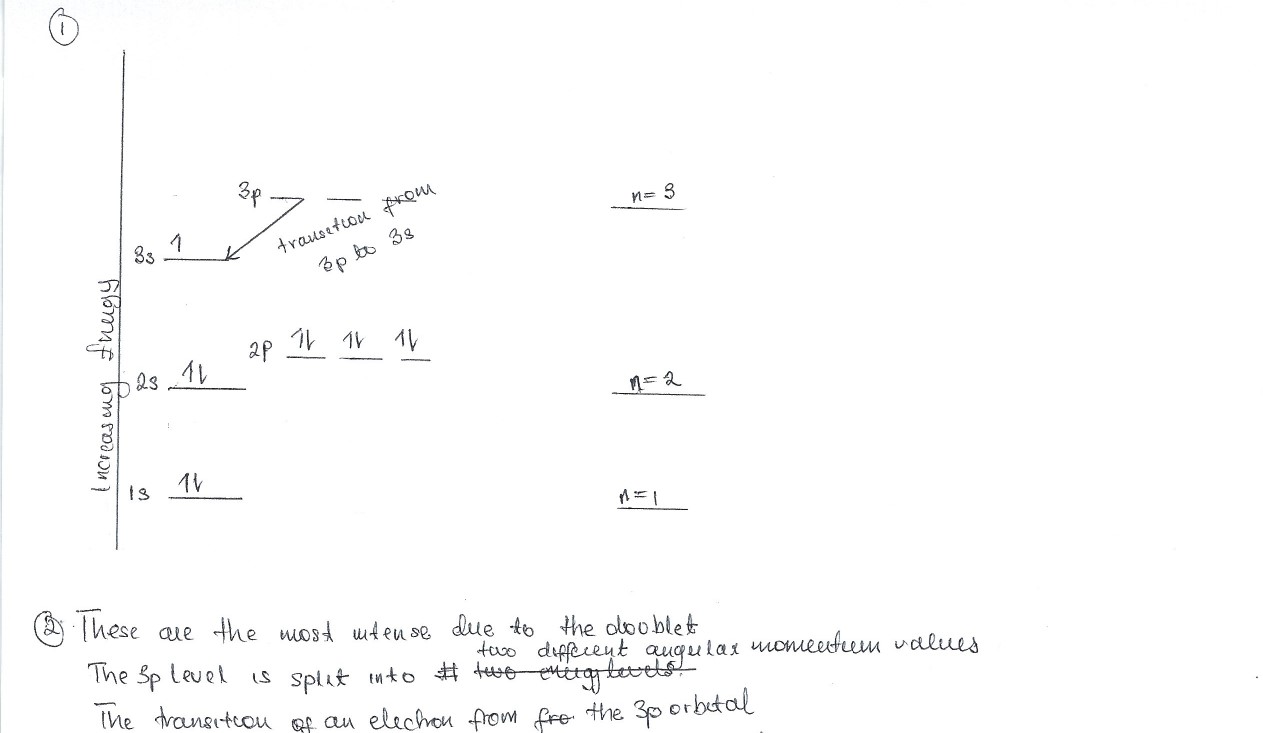 ①
3p
n= 3
transition from
3p to 3s
3s 1
Increasing Energy
2p 1l 1l 1l
2s 1l
n=2
1s 1l
n=1
② These are the most intense due to the doublet
two different angular momentum values
The 3p level is split into two energy levels.
The transition of an electron from fro the 3p orbital